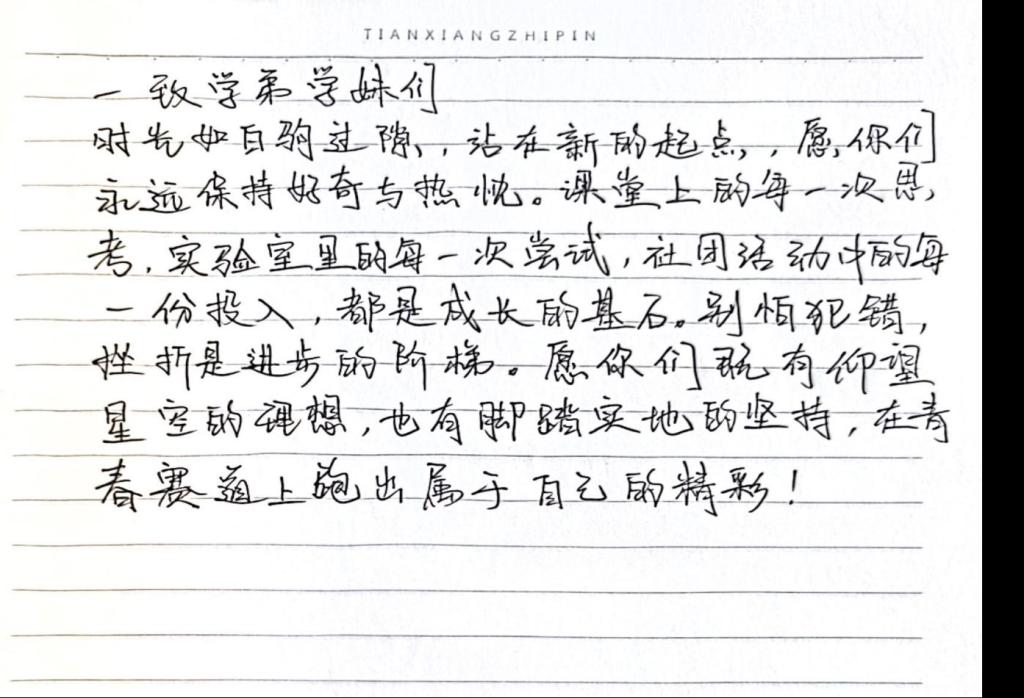 TIANXIANGZHIPIN
一致学弟学妹们
时光如白驹过隙，站在新的起点，愿你们
永远保持好奇与热忱。课堂上的每一次思
考，实验室里的每一次尝试，社团活动中的每
一份投入，都是成长的基石。别怕犯错，
挫折是进步的阶梯。愿你们既有仰望
星空的理想，也有脚踏实地的坚持，在青
春赛道上跑出属于自己的精彩！